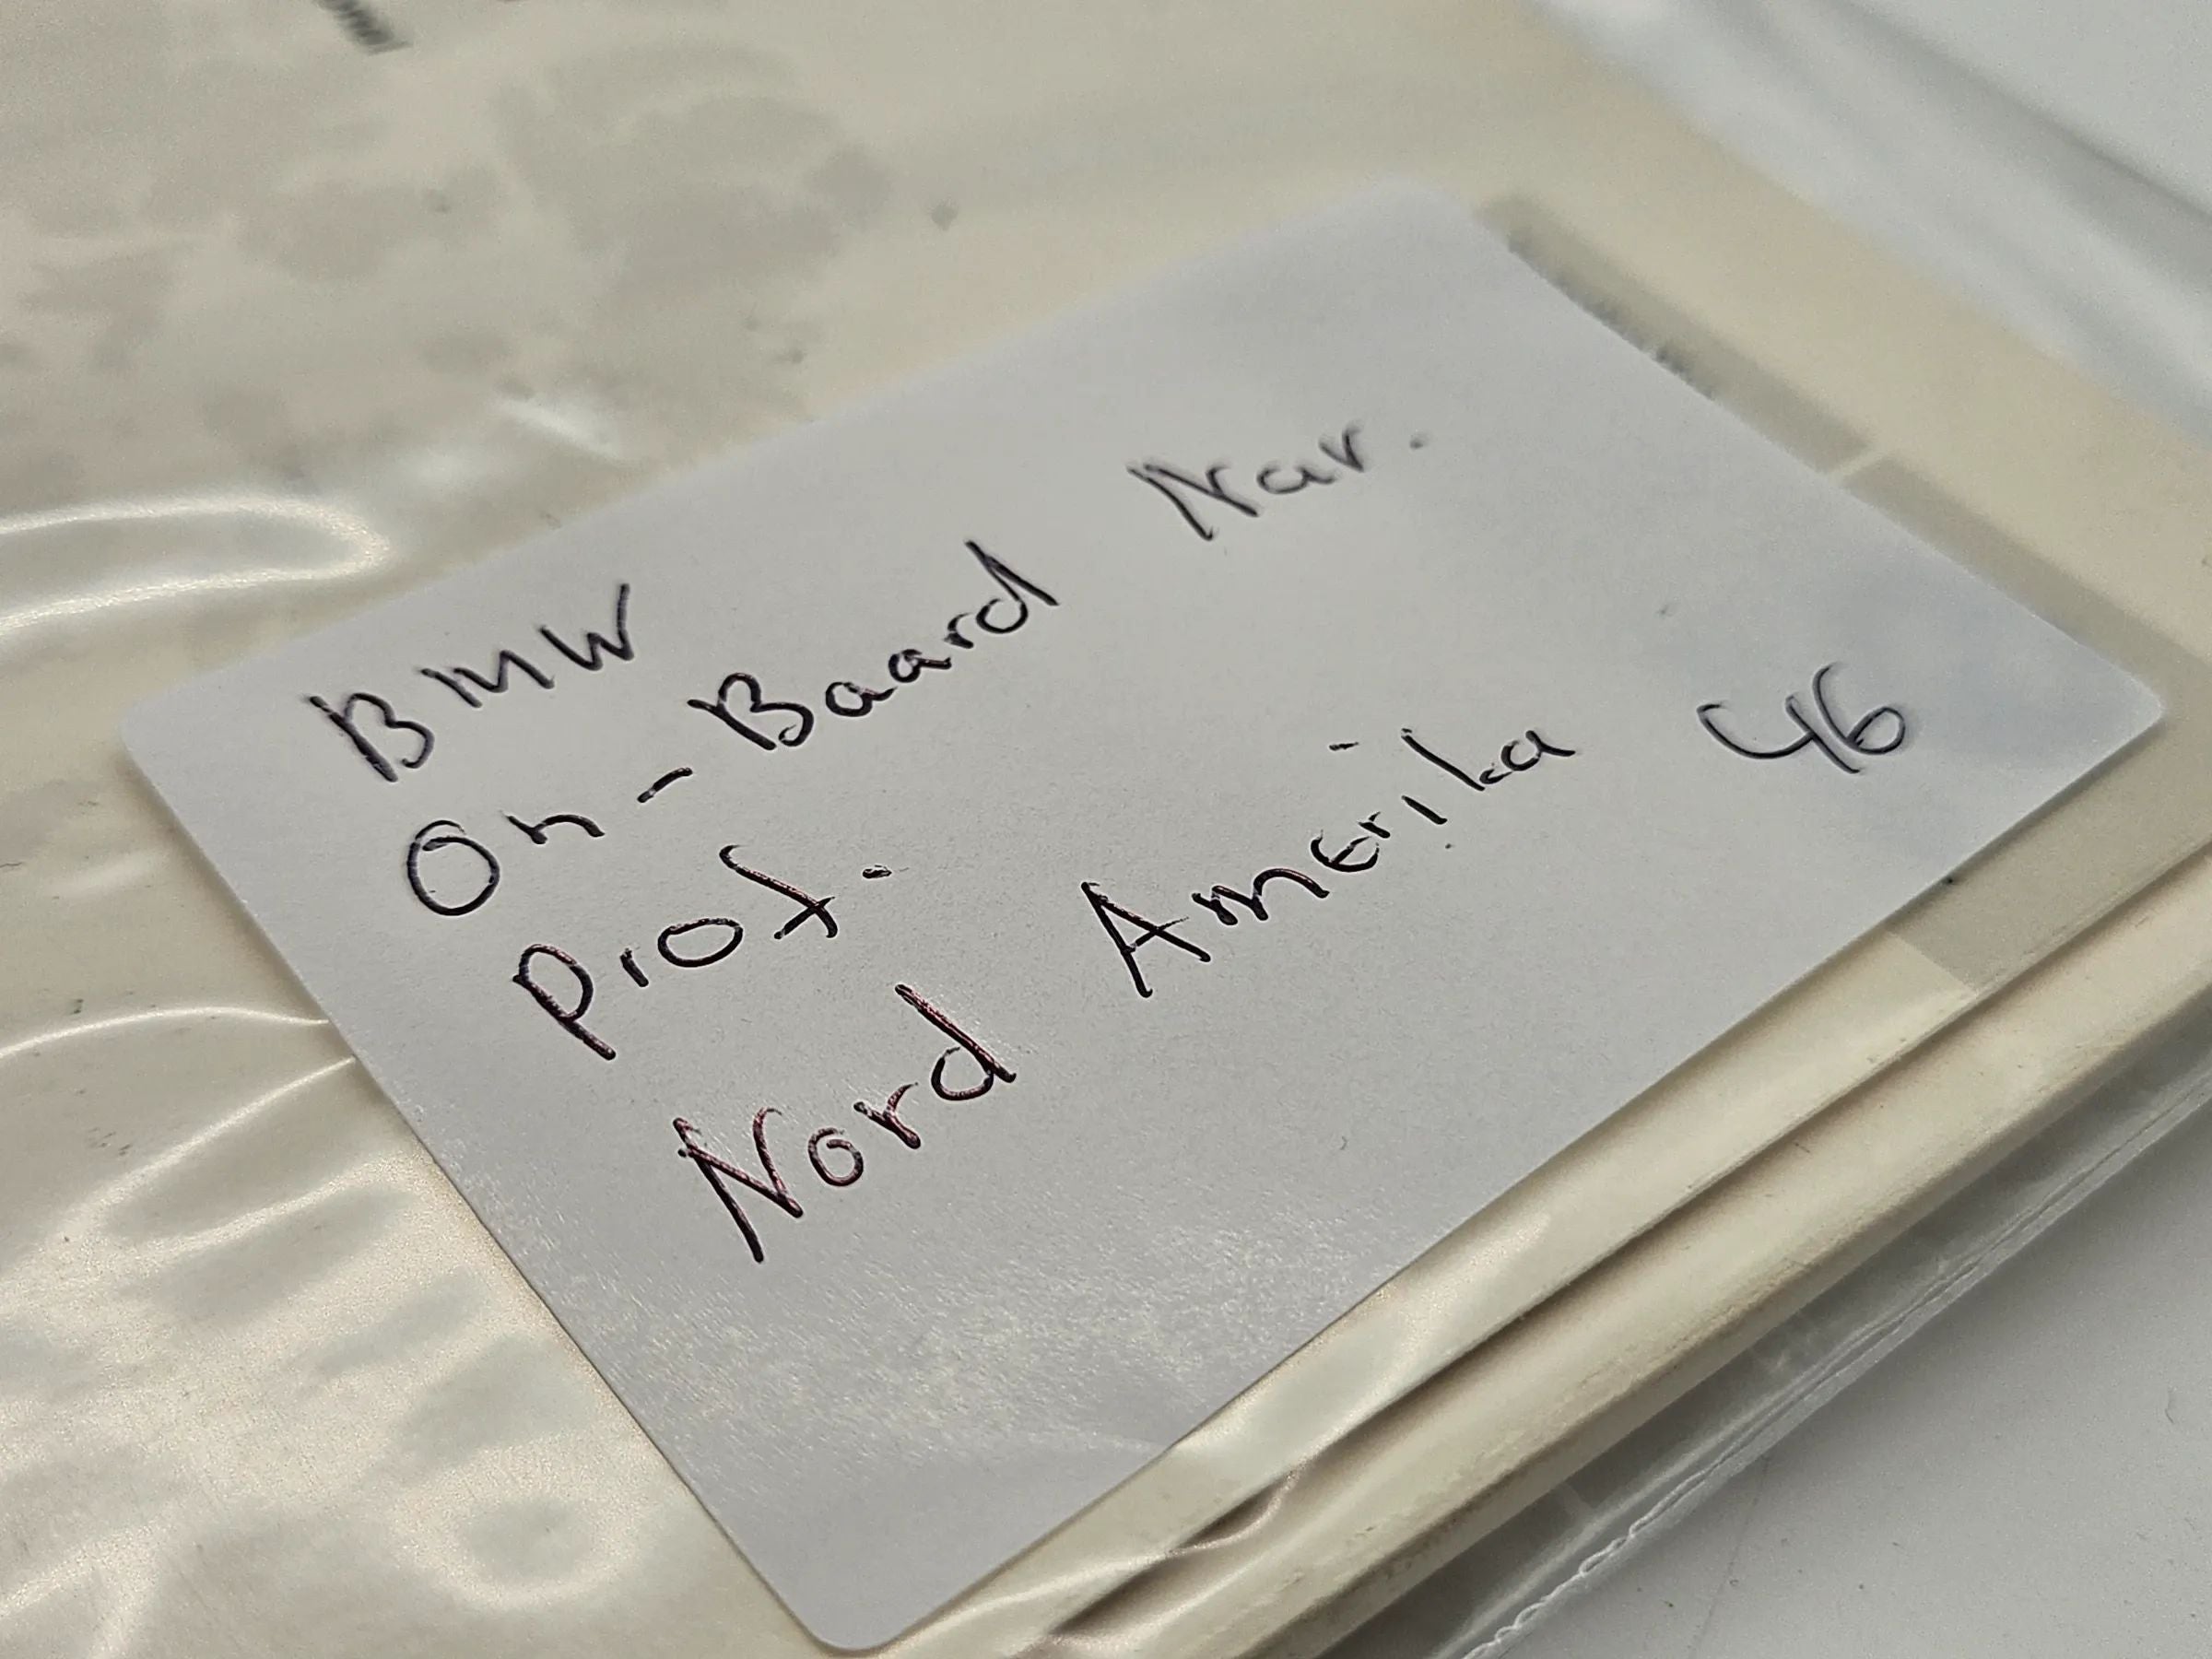 BMW
On-Baard Nav.
Prof.
Nord Amerika 46